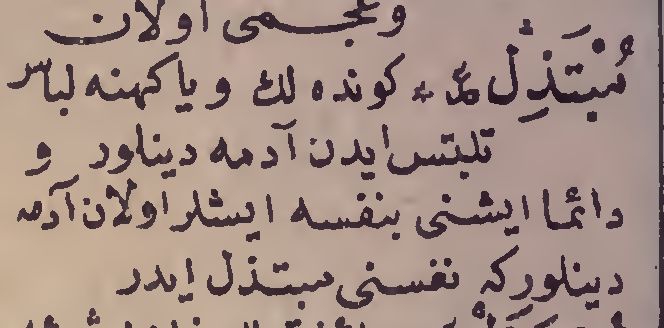 وعجمی اولان
مُبْتَذِل كونده لك ویا كهنه لباس
تلبس ایدن آدمه دینلور و
دائما ایشنی بنفسه ایشلر اولان آدمه
دینلوركه نفسنی مبتذل ایدر